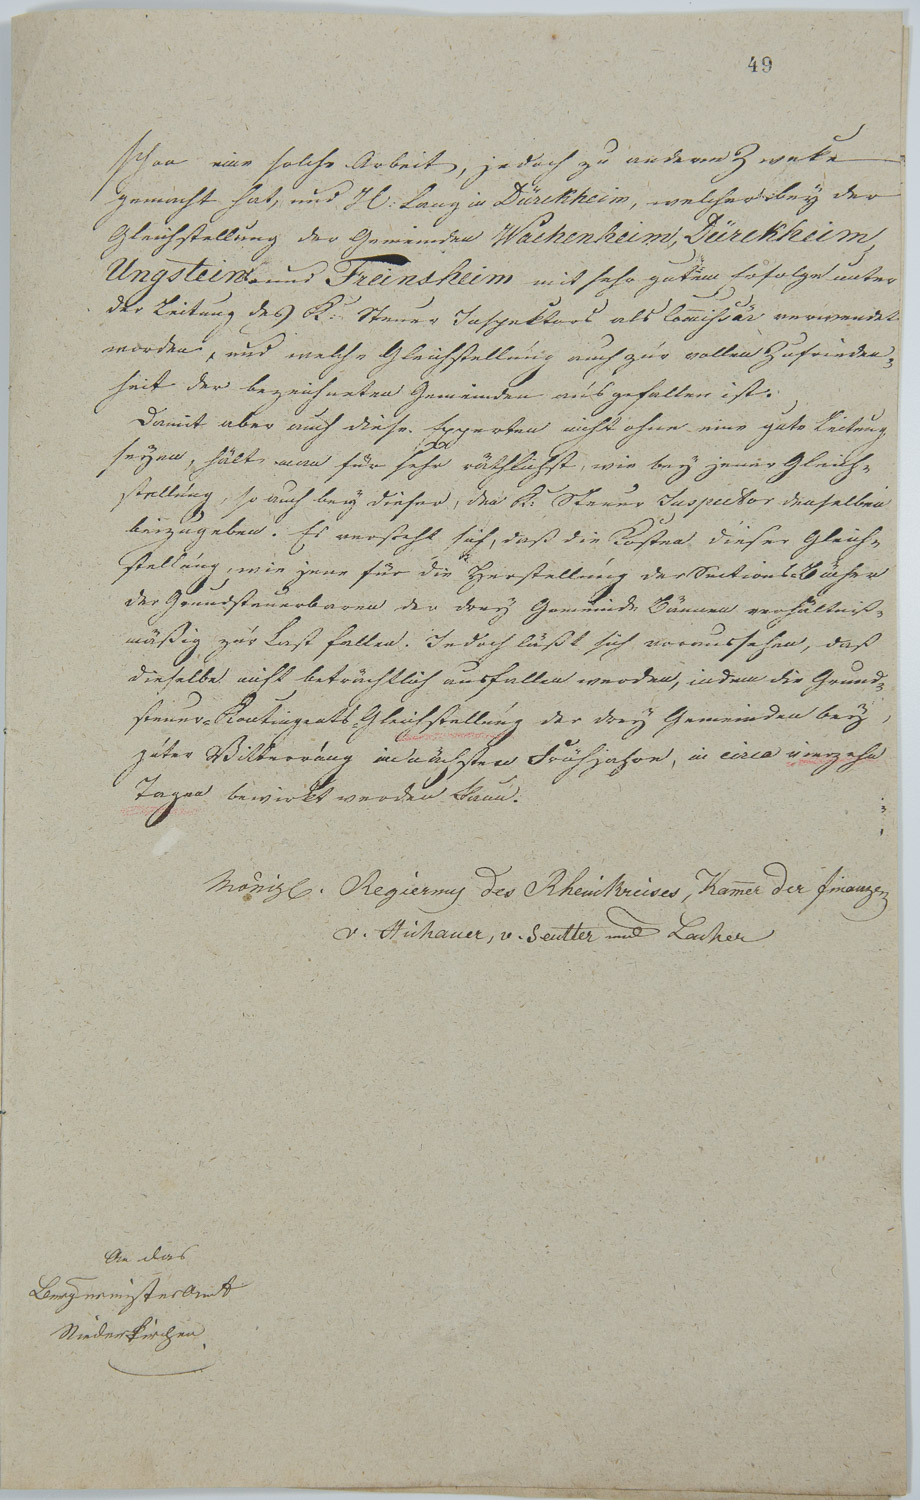 49
schon eine solche Arbeit, jedoch zu anderem Zweke
gemacht hat, und H: Lang in Dürckheim, welcher bey der
Gleichstellung der Gemeinden Wachenheim, Dürckheim,
Ungstein und Freinsheim mit sehr gutem Erfolge unter
der Leitung des K: Steuer Inspektors als Commißär verwendet
worden, und welche Gleichstellung auch zur vollen Zufrieden=
heit der bezeichneten Gemeinden ausgefallen ist.
Damit aber auch diese Experten nicht ohne eine gute Leitung
seyen, hält man für sehr räthlichst, wie bey jener Gleich=
stellung, so auch bey dieser, den K: Steuer Inspector denselben
beizugeben. Es versteht sich, daß die Kosten dieser Gleich=
stellung, wie jene für die Herstellung der Sections=Bücher
den Grundsteuerbaren der drey Gemeinde Bännen verhältniß=
mäßig zur Last fallen. Jedoch läßt sich voraussehen, daß
dieselbe nicht beträchtlich ausfallen werden, indem die Grund=
steuer=Kontingents=Gleichstellung der drey Gemeinden bey
guter Witterung im nächsten Frühjahre, in circa vierzehn
Tagen bewirkt werden kann.
Königl. Regierung des Rheinkreises, Kammer der Finanzen
v. Stichaner, v. Seutter und Lacher
An das
Bürgermeister Amt
Niederkirchen